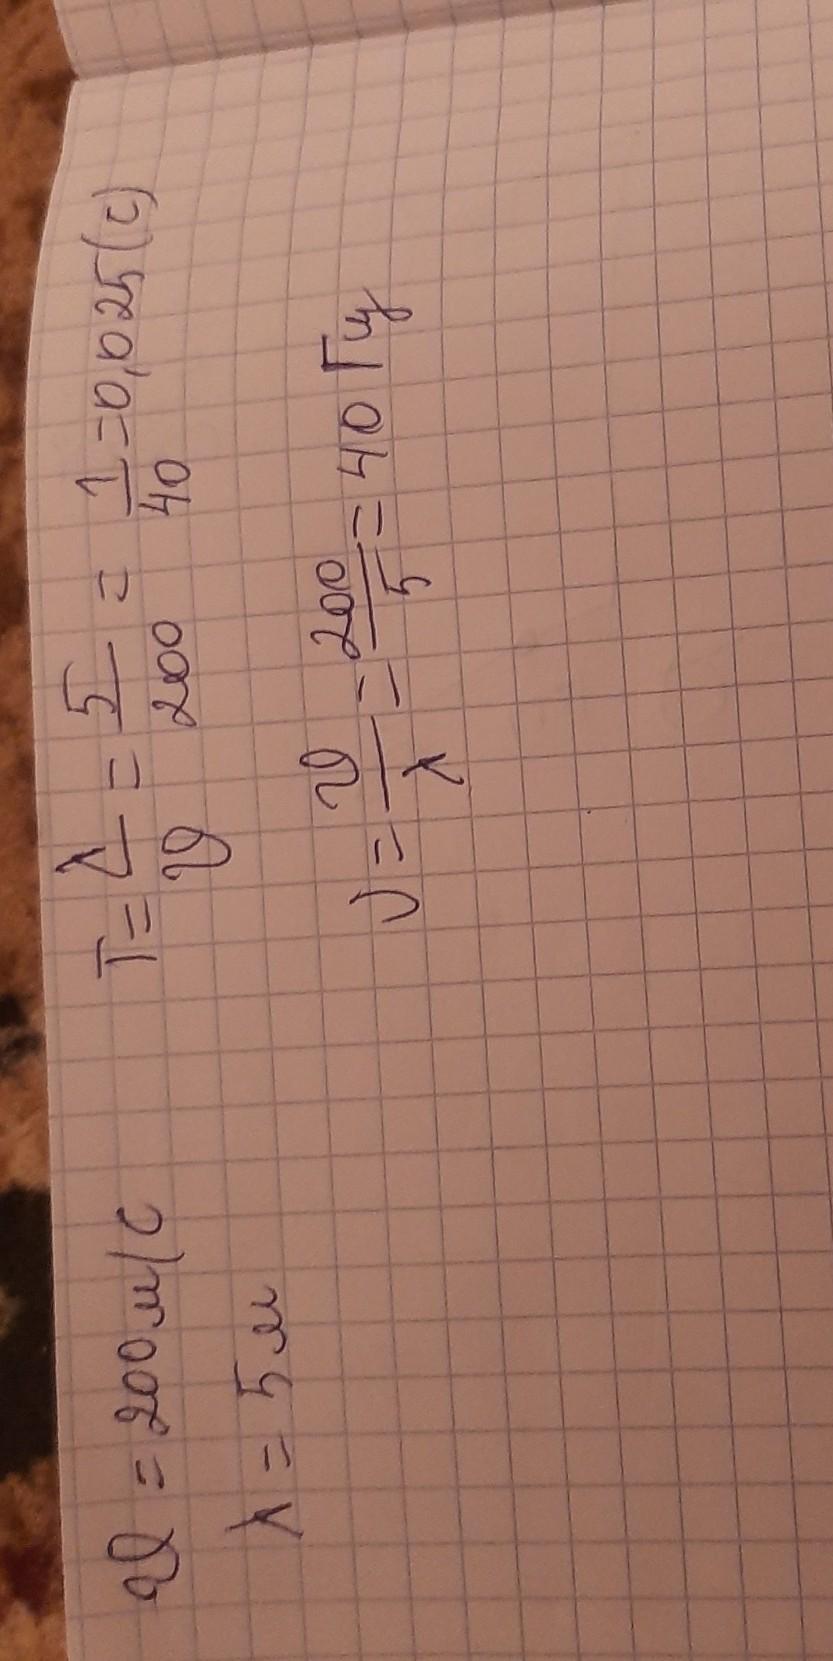 υ = 200 м/с
λ = 5 м
T = λ/υ = 5/200 = 1/40 = 0,025 (с)
ν = υ/λ = 200/5 = 40 Гц